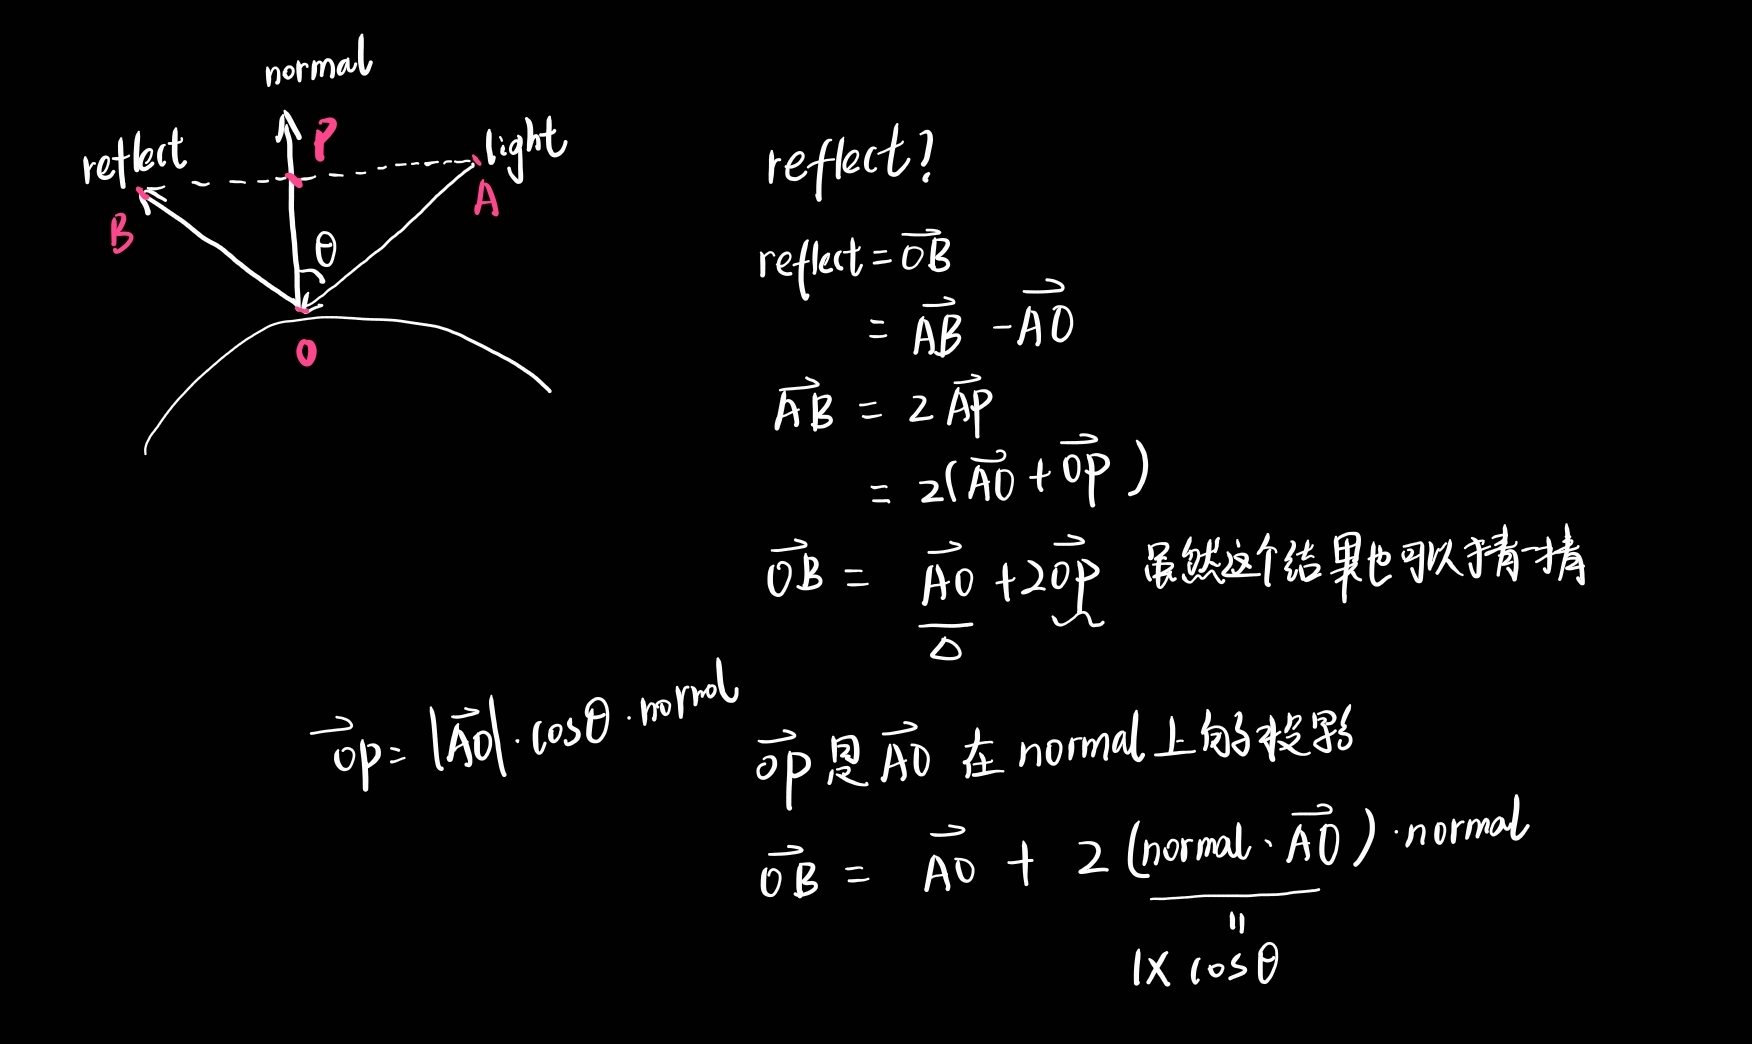 normal
reflect
P
light
A
B
θ
O
reflect?
reflect = \overrightarrow{OB}
= \overrightarrow{AB} - \overrightarrow{AO}
\overrightarrow{AB} = 2 \overrightarrow{AP}
= 2(\overrightarrow{AO} + \overrightarrow{OP})
\overrightarrow{OB} = \overrightarrow{AO} + 2\overrightarrow{OP} 虽然这个结果也可以猜一猜
\overrightarrow{OP} = |\overrightarrow{AO}| · cosθ · normal
\overrightarrow{OP} 是 \overrightarrow{AO} 在 normal 上的投影
\overrightarrow{OB} = \overrightarrow{AO} + 2 (normal · \overrightarrow{AO}) · normal
=
1 × cosθ